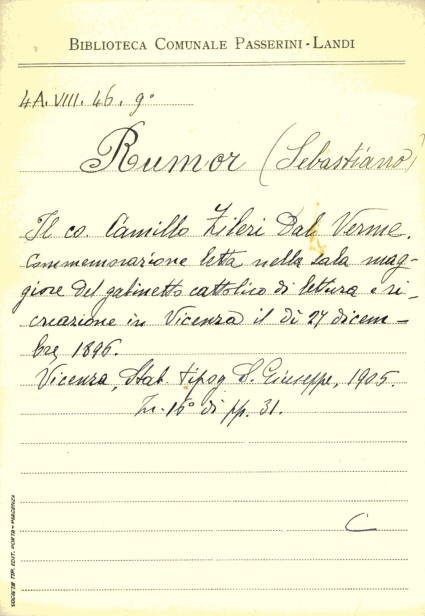 BIBLIOTECA COMUNALE PASSERINI-LANDI
4A. VIII. 46. 9°
Rumor (Sebastiano)
Il co. Camillo Zileri Dal Verme.
Commemorazione letta nella sala mag-
giore del gabinetto cattolico di lettura e ri-
creazione in Vicenza il dì 27 dicem-
bre 1896.
Vicenza, Stab. tipog S. Giuseppe, 1905.
In-16° di pp. 31.
C
SOCIETÀ TIP. EDIT. PORTA-PIACENZA